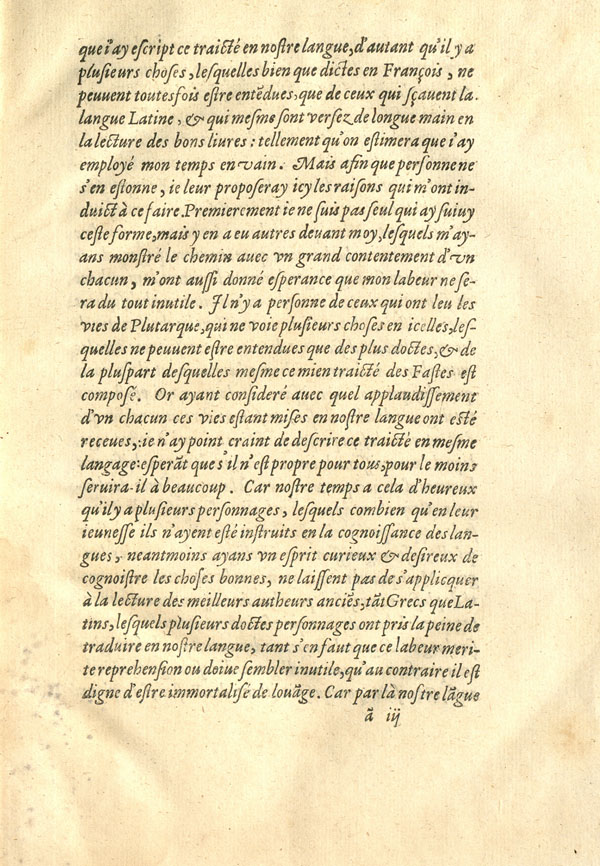 que i'ay eſcript ce traicté en noſtre langue, d'autant qu'il y a
pluſieurs choſes, leſquelles bien que dictes en François, ne
peuuent toutesfois eſtre entẽdues, que de ceux qui ſçauent la
langue Latine, & qui meſme ſont verſez de longue main en
la lecture des bons liures: tellement qu'on eſtimera que i'ay
employé mon temps en vain. Mais afin que perſonne ne
s'en eſtonne, ie leur propoſeray icy les raiſons qui m'ont in-
duict à ce faire. Premierement ie ne ſuis pas ſeul qui ay ſuiuy
ceſte forme, mais y en a eu autres deuant moy, leſquels m'ay-
ans monſtré le chemin auec vn grand contentement d'vn
chacun, m'ont auſſi donné eſperance que mon labeur ne ſe-
ra du tout inutile. Il n'y a perſonne de ceux qui ont leu les
vies de Plutarque, qui ne voie pluſieurs choſes en icelles, leſ-
quelles ne peuuent eſtre entendues que des plus doctes, & de
la pluſpart deſquelles meſme ce mien traicté des Faſtes eſt
compoſé. Or ayant conſideré auec quel applaudiſſement
d'vn chacun ces vies eſtant miſes en noſtre langue ont eſté
receues, ie n'ay point craint de deſcrire ce traicté en meſme
langage: eſperãt que s'il n'eſt propre pour tous, pour le moins
ſeruira-il à beaucoup. Car noſtre temps a cela d'heureux
qu'il y a pluſieurs perſonnages, leſquels combien qu'en leur
ieuneſſe ils n'ayent eſté inſtruits en la cognoiſſance des lan-
gues, neantmoins ayans vn eſprit curieux & deſireux de
cognoiſtre les choſes bonnes, ne laiſſent pas de s'applicquer
à la lecture des meilleurs autheurs anciẽs, tãt Grecs que La-
tins, leſquels pluſieurs doctes perſonnages ont pris la peine de
traduire en noſtre langue, tant s'en faut que ce labeur meri-
te reprehenſion ou doiue ſembler inutile, qu'au contraire il eſt
digne d'eſtre immortaliſé de louãge. Car par là noſtre lãgue
ã iij